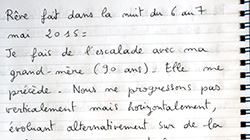 Rêve fait dans la nuit du 6 au 7
mai 2015 :
Je fais de l'escalade avec ma
grand-mère (90 ans). Elle me
précède. Nous ne progressons pas
verticalement mais horizontalement,
évoluant alternativement sur de la